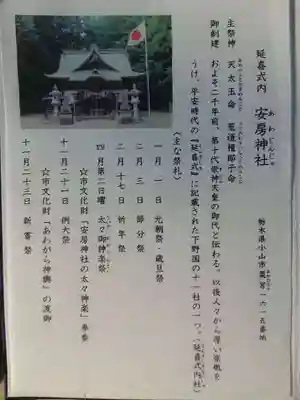 延喜式内 安房神社
あわじんじゃ
栃木県小山市粟宮一六一五番地
主祭神 天太玉命 莵道稚郎子命
御創建 およそ二千年前、第十代崇神天皇の御代と伝わる。以後人々から厚い崇敬を
うけ、平安時代の『延喜式』に記載された下野国の十一社の一つ。(延喜式内社)
(主な祭礼)
一月一日 元朝祭・歳旦祭
二月三日 節分祭
二月十七日 祈年祭
四月第二日曜 太々御神楽祭
☆市文化財「安房神社の太々神楽」奉奏
十一月二十一日 例大祭
☆市文化財「あわがら神輿」の渡御
十一月二十三日 新嘗祭